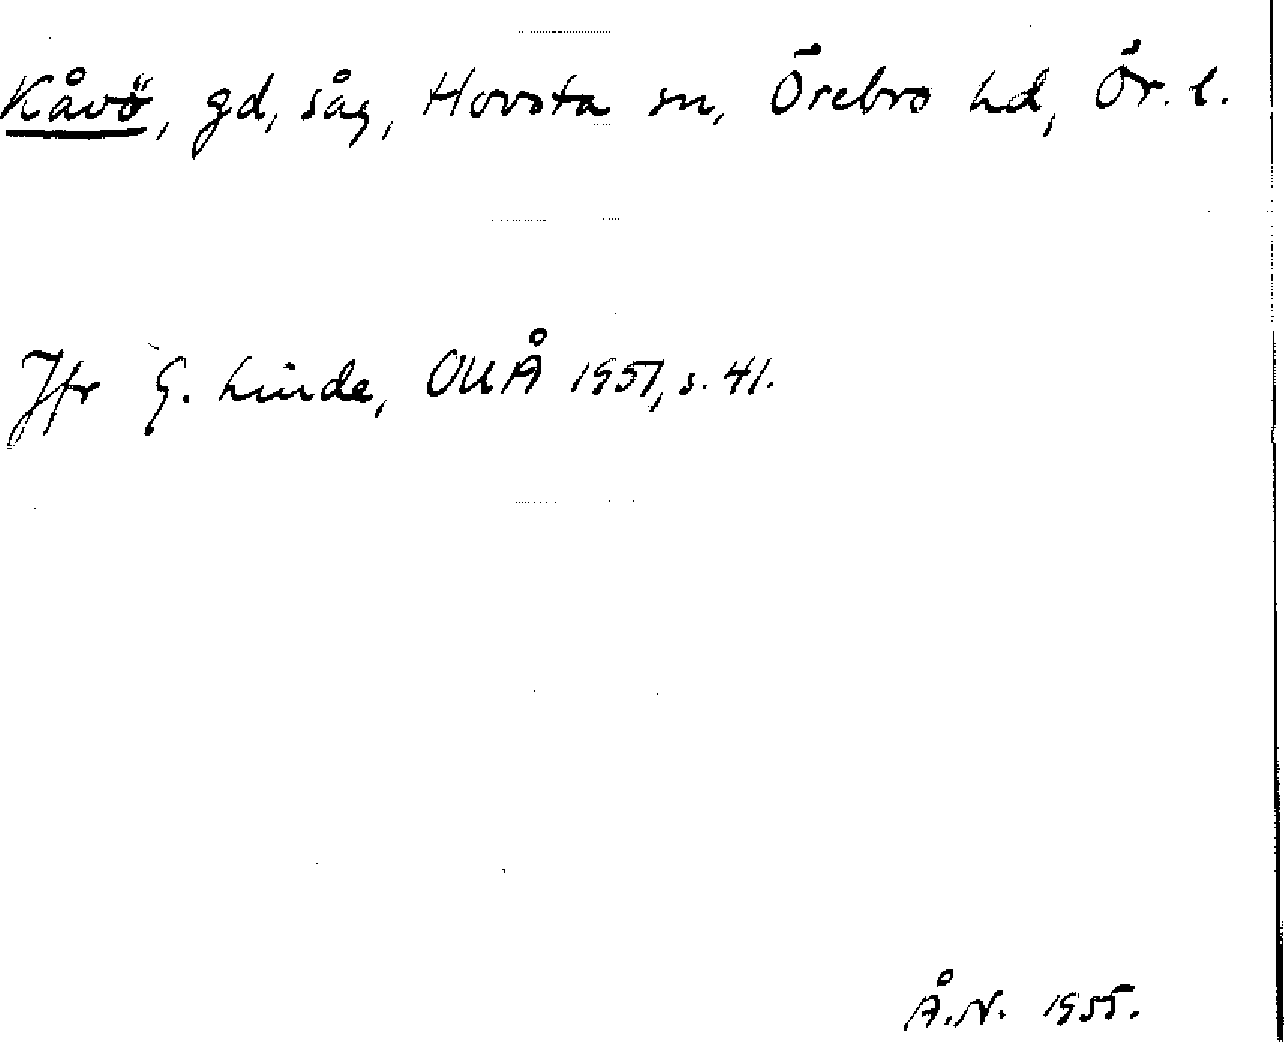 Kåvö, gd, såg, Hovsta sn, Örebro hd, Ör. l.
Jfr G. Linde, OUÅ 1951, s. 41.
Å.N. 1955.